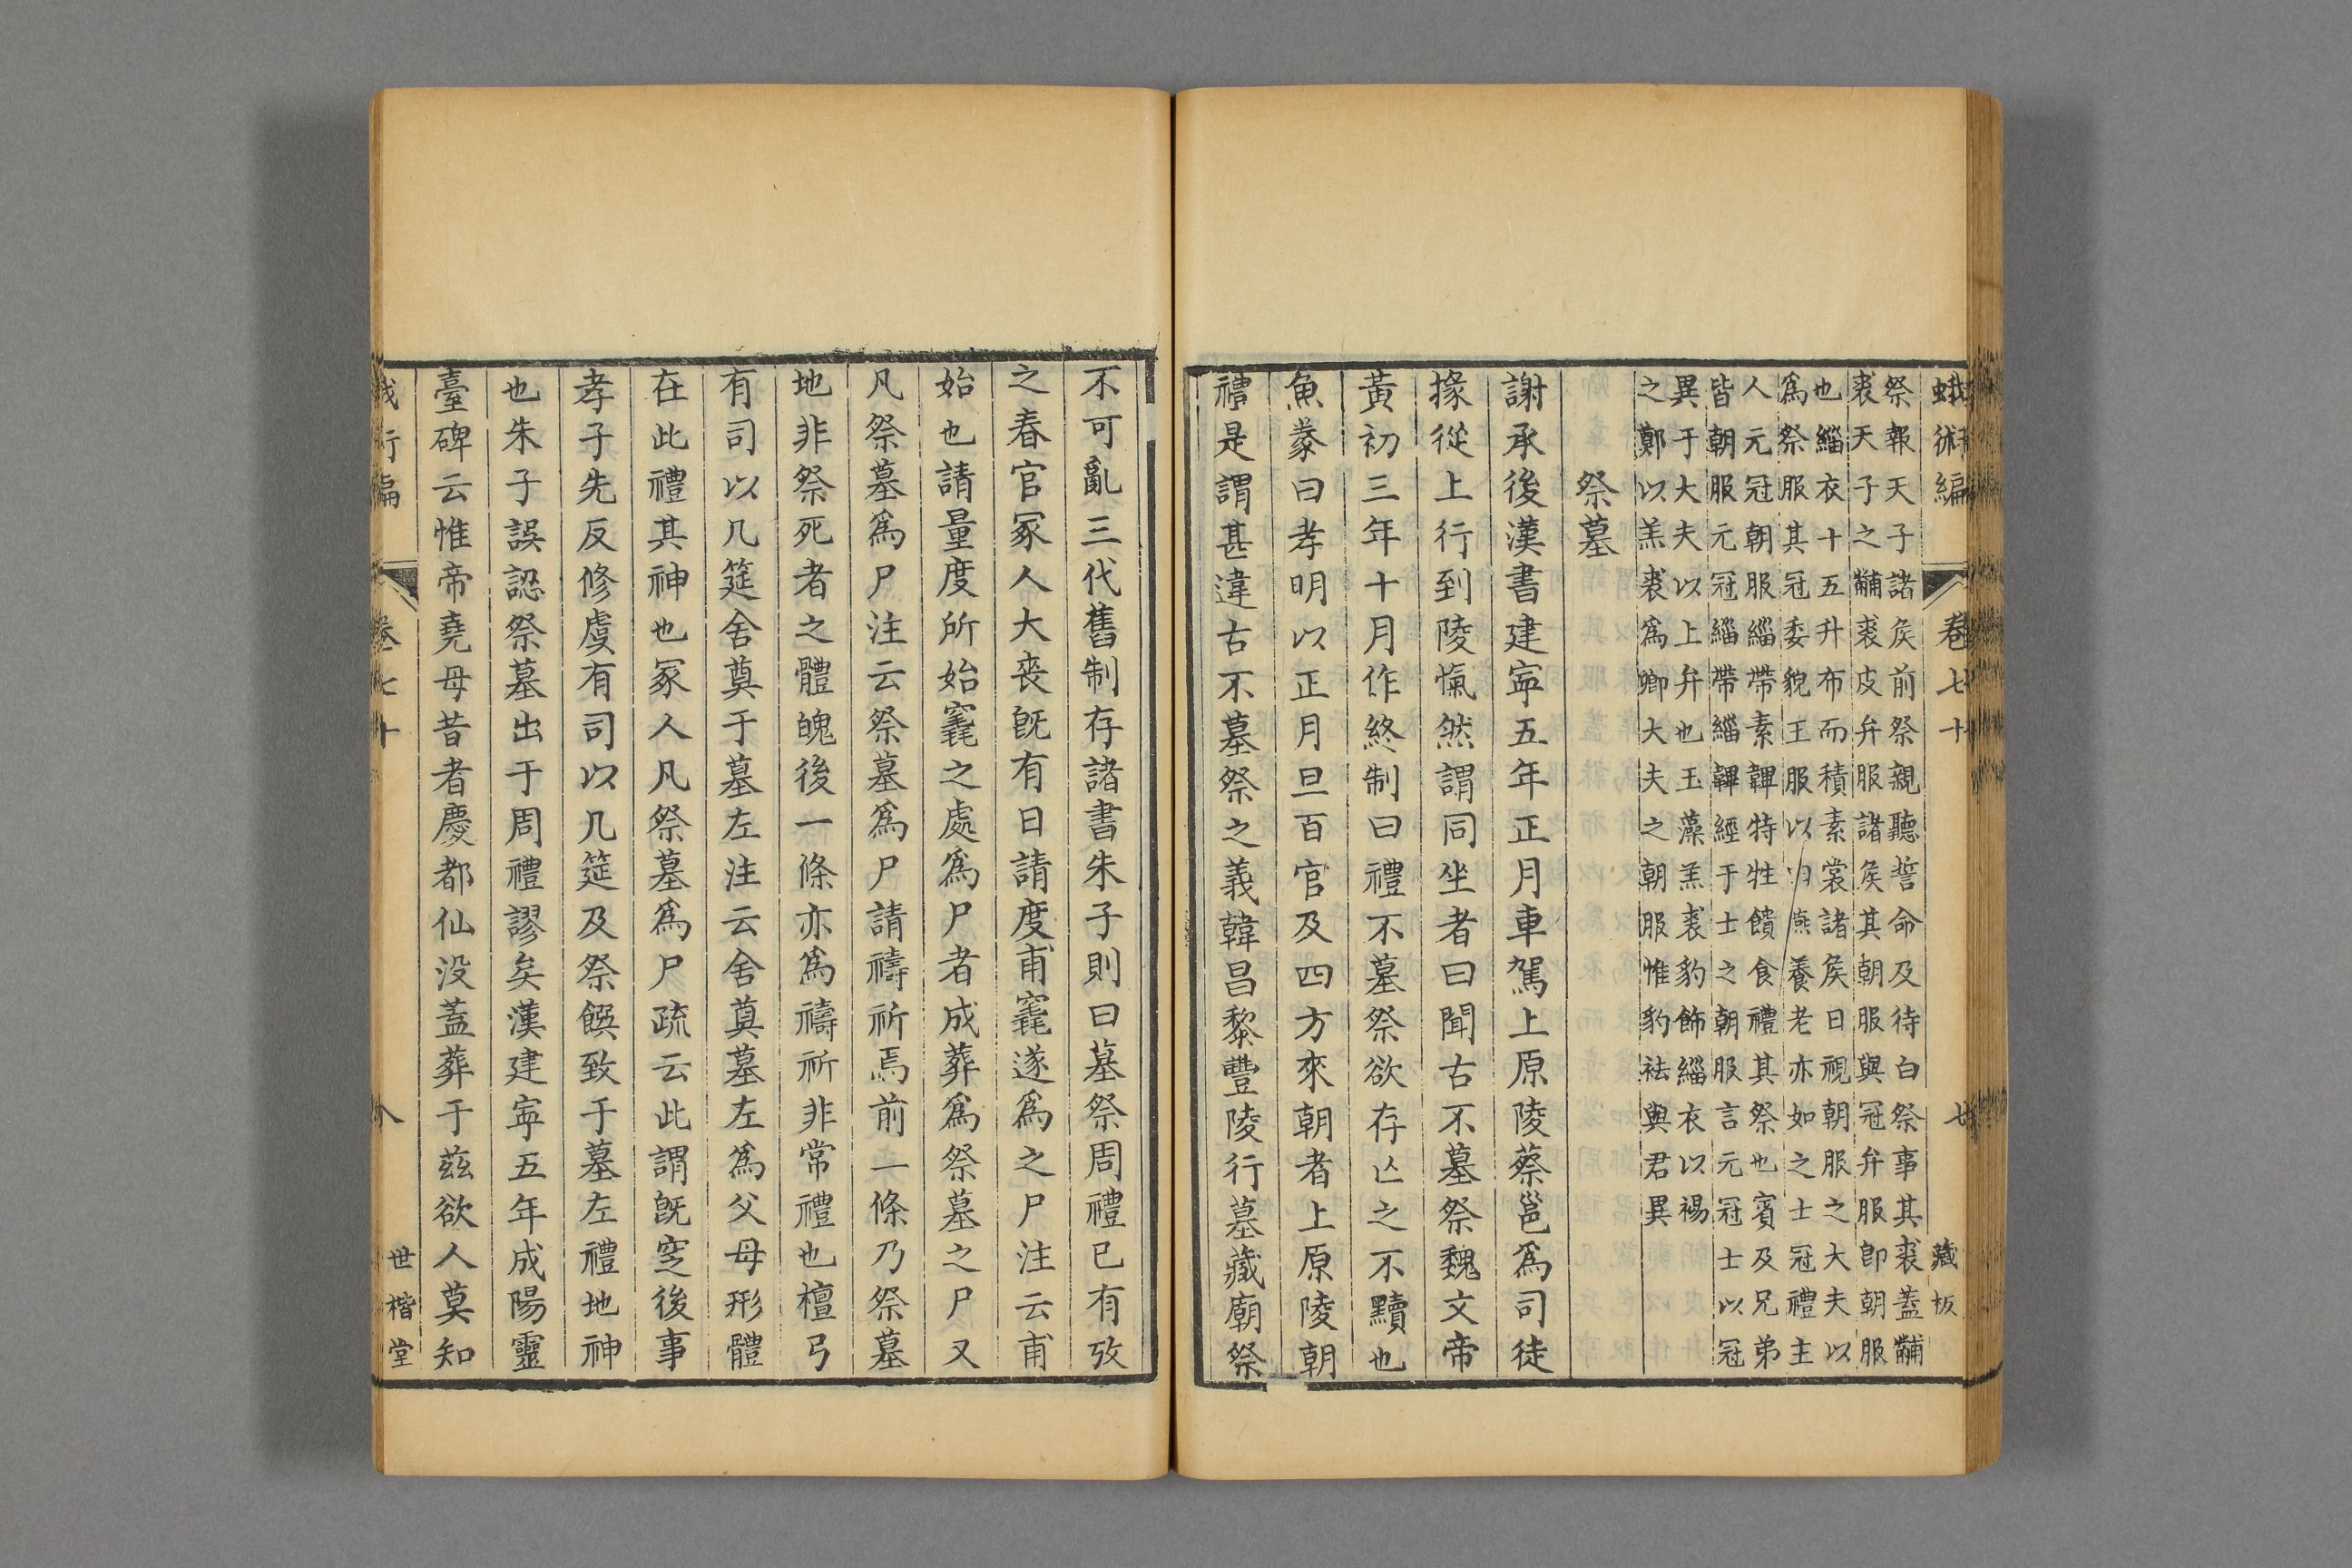 蛾術編 卷七十 七 藏板
祭報天子諸矦前祭親聽誓命及待白祭事其裘蓋黼
裘天子之黼裘皮弁服諸矦其朝服與冠弁服卽朝服
也緇衣十五升布而積素裳諸矦日視朝服之大夫以
爲祭服其冠委貌王服以 燕養老亦如之士冠禮主
人元冠朝服緇帶素韠特牲饋食禮其祭也賓及兄弟
皆朝服元冠緇帶緇韠經于士之朝服言元冠士以冠
異于大夫以上弁也玉藻羔裘豹飾緇衣以裼
之鄭以羔裘爲卿大夫之朝服惟豹袪與君異
祭墓
謝承後漢書建寧五年正月車駕上原陵蔡邕爲司徒
掾從上行到陵愾然謂同坐者曰聞古不墓祭魏文帝
黃初三年十月作終制曰禮不墓祭欲存亾之不黷也
魚豢曰孝明以正月旦百官及四方來朝者上原陵朝
禮是謂甚違古不墓祭之義韓昌黎豐陵行墓藏廟祭
不可亂三代舊制存諸書朱子則曰墓祭周禮已有攷
之春官冢人大喪旣有日請度甫竁遂爲之尸注云甫
始也請量度所始竁之處爲尸者成葬爲祭墓之尸又
凡祭墓爲尸注云祭墓爲尸請禱祈焉前一條乃祭墓
地非祭死者之體魄後一條亦爲禱祈非常禮也檀弓
有司以几筵舍奠于墓左注云舍奠墓左爲父母形體
在此禮其神也冢人凡祭墓爲尸疏云此謂旣窆後事
孝子先反修虞有司以几筵及祭饌致于墓左禮地神
也朱子誤認祭墓出于周禮謬矣漢建寧五年成陽靈
臺碑云惟帝堯母昔者慶都仙没蓋葬于茲欲人莫知
術編 卷七十 八 世楷堂